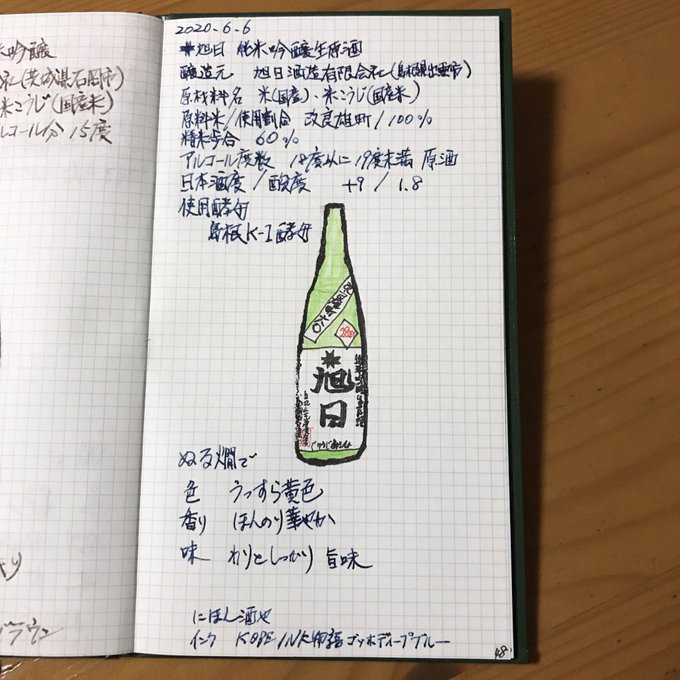 米吟醸
会社(茨城県石岡市)
米こうじ(国産米)
アルコール分 15度
ブラウン
2020.6.6
旭日 純米吟醸生原酒
醸造元 旭日酒造有限会社(島根県出雲市)
原材料名 米(国産)・米こうじ(国産米)
原料米/使用割合 改良雄町/100%
精米歩合 60%
アルコール度数 18度以上19度未満 原酒
日本酒度/酸度 +9/1.8
使用酵母
島根K-1酵母
改良雄町60
28BY
旭
日
ぬる燗で
色 うっすら黄色
香り ほんのり華やか
味 わりとしっかり旨味
にほし酒や
インク KOBE INK物語 ゴッホディープブルー
48